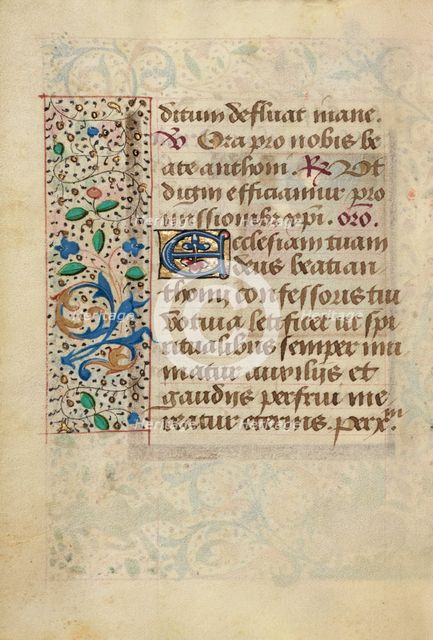 ditum defluat mane.
V Ora pro nobis be
ate anthoni. R Ut
digni efficiamur pro
missionib xpi. oro.
Ecclesiam tuam
deus beati an
thonij confessoris tui
votiua letificet ut spi
ritualibus semper mu
niatur auxilijs et
gaudijs perfrui me
reatur eternis. per xm.
heritage